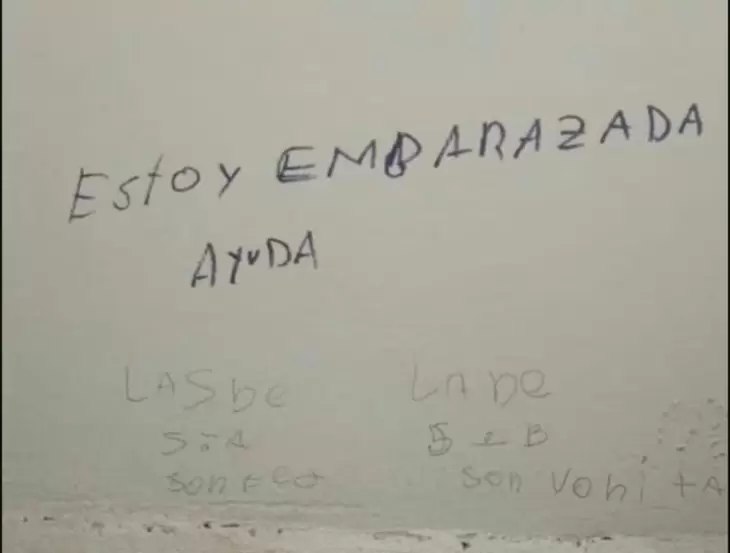 Estoy EMBARAZADA
AYUDA
LAS DE
5:A
son
LA DE
5 B
son vohitA